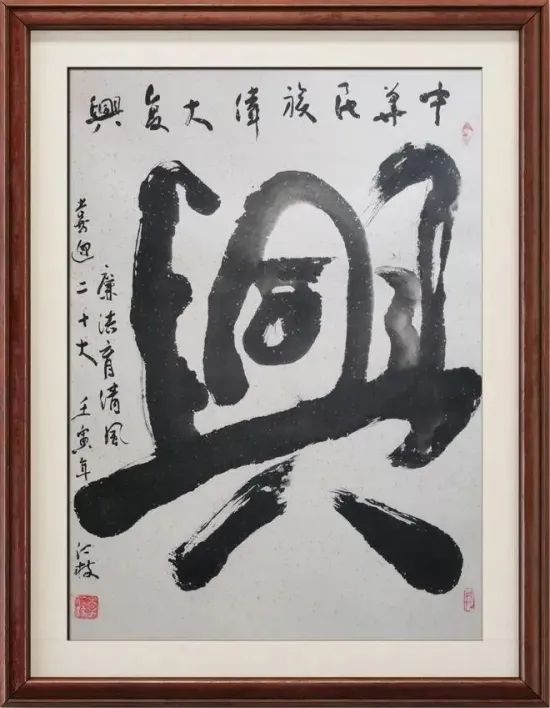 中華民族偉大复興
興
廉洁育清风
喜迎二十大 壬寅年